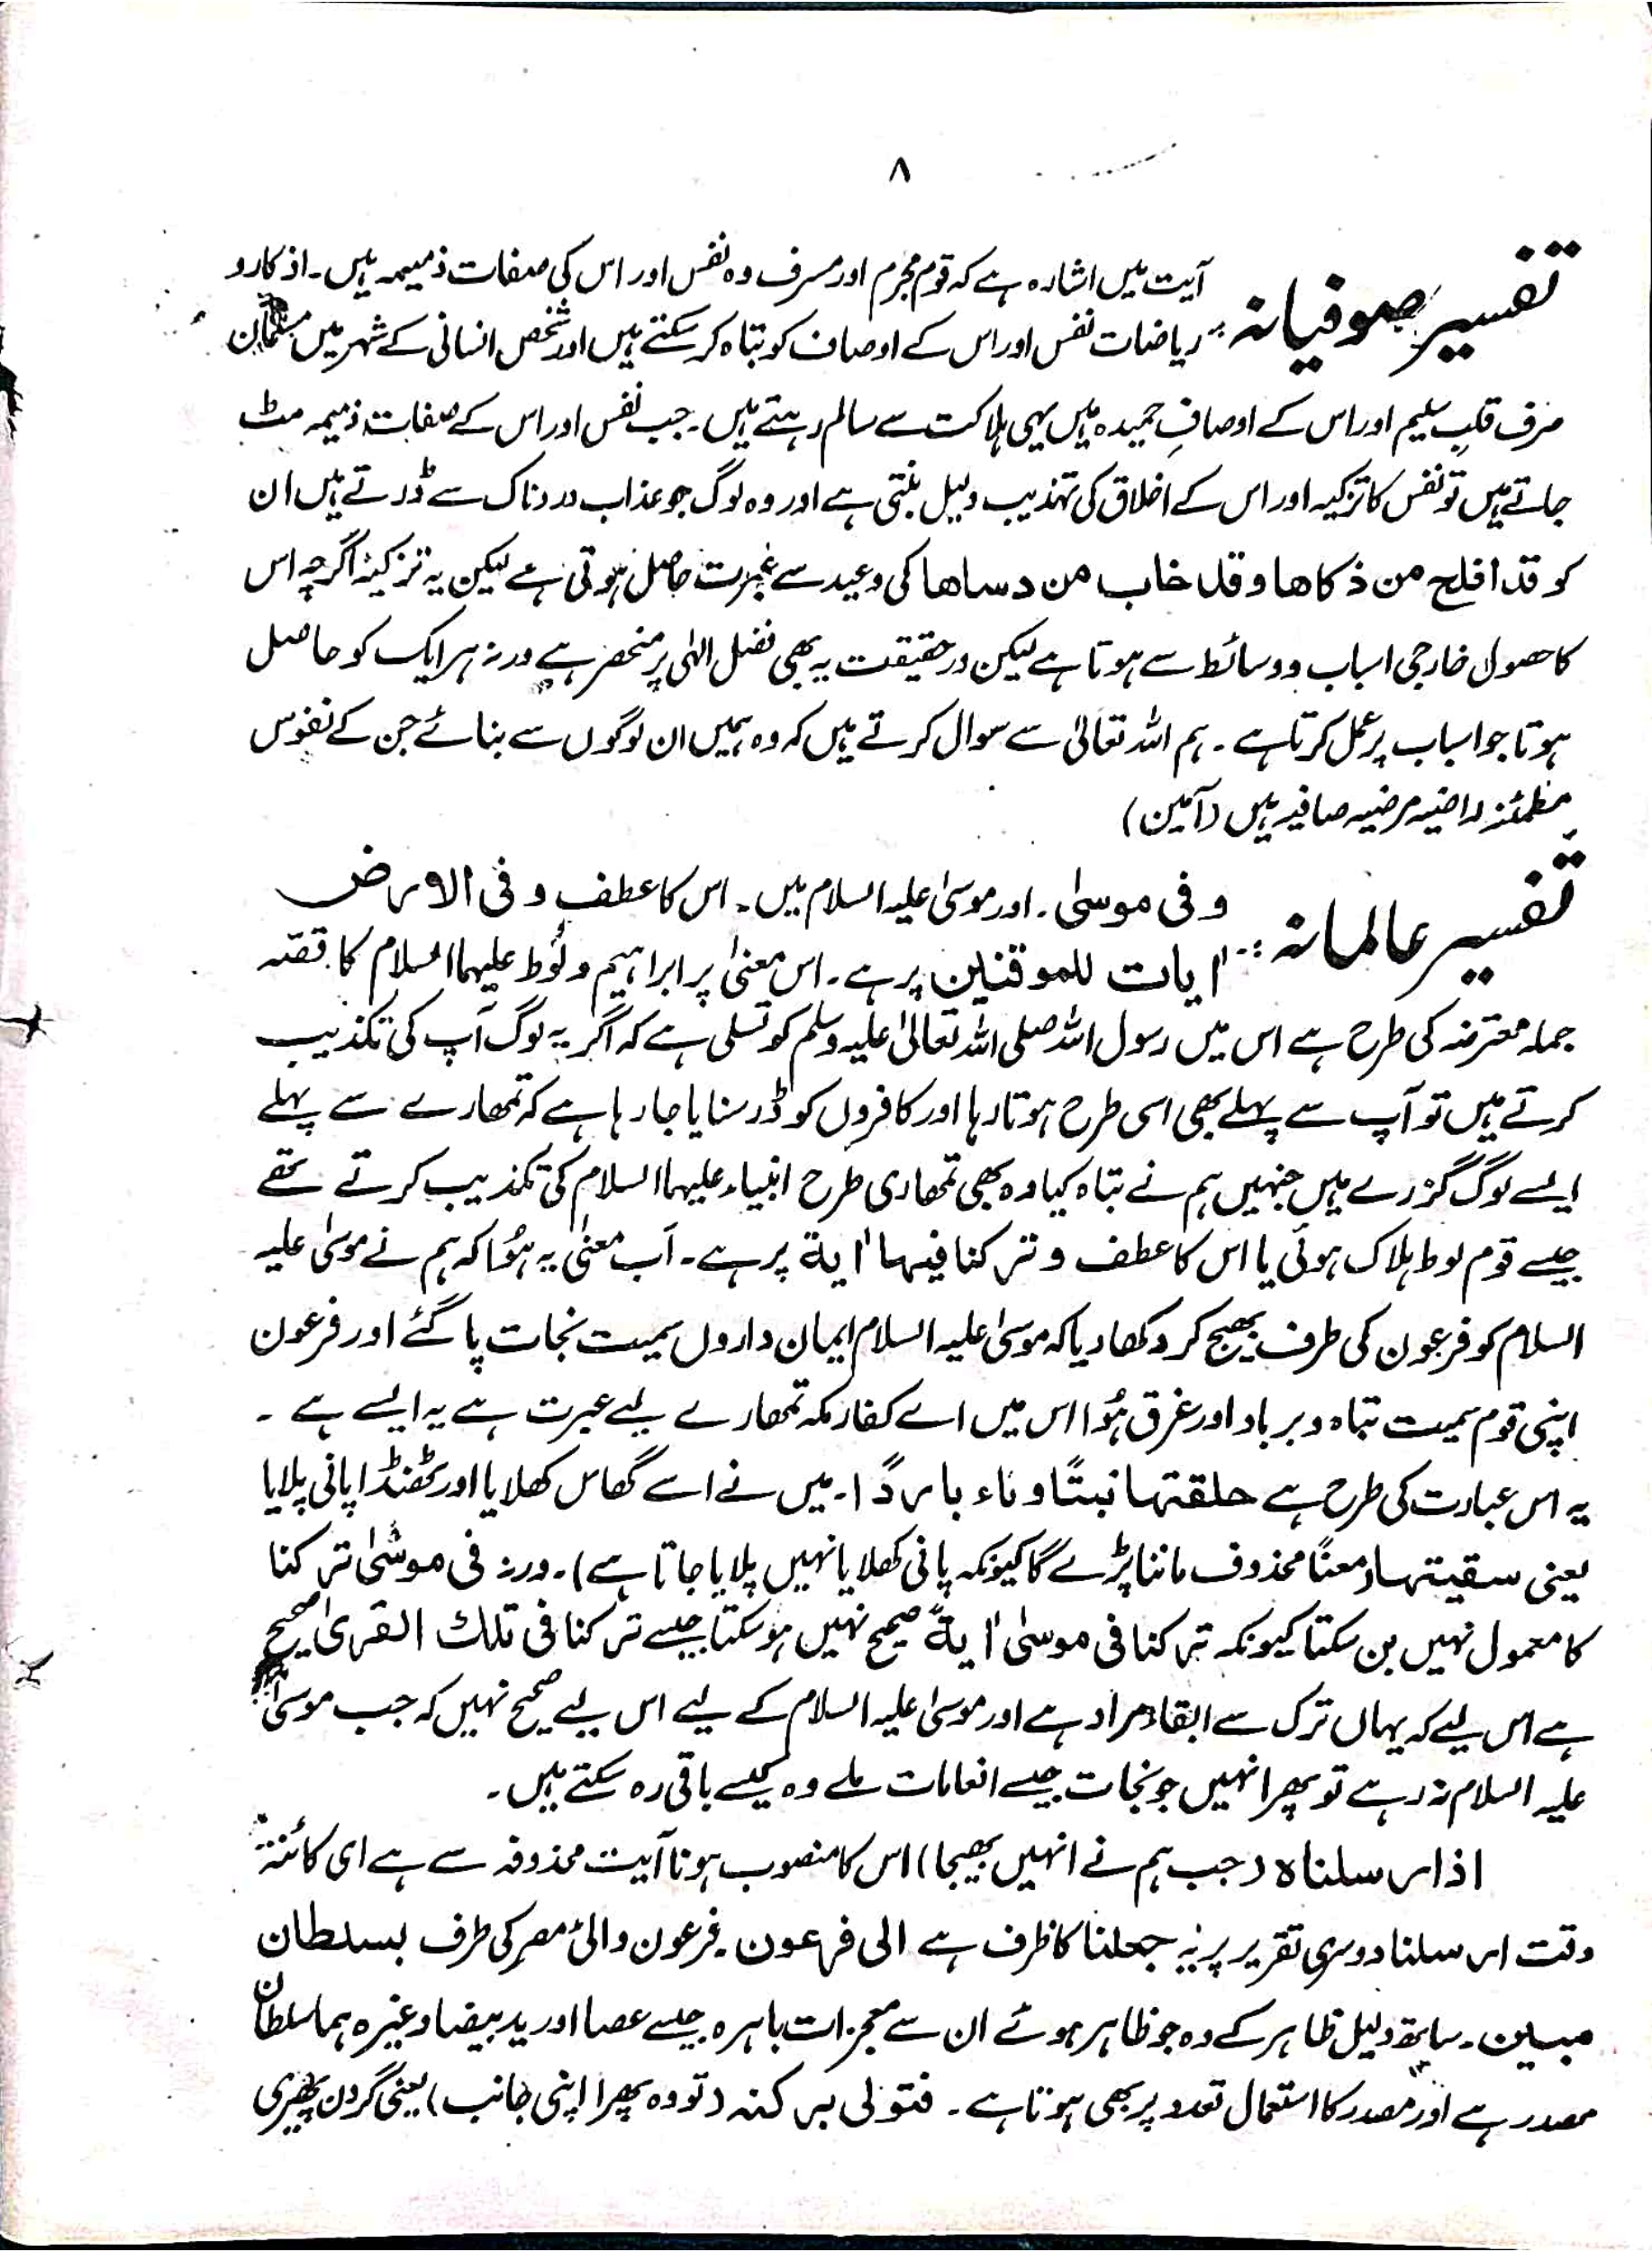 ۸
تفسیر صوفیانہ: آیت میں اشارہ ہے کہ قوم مجرم اور مسرف وہ نفس اور اس کی صفات ذمیمہ ہیں۔ اذکار و
ریاضات نفس اور اس کے اوصاف کو تباہ کر سکتے ہیں اور شخص انسانی کے شہر میں مسلمان
صرف قلبِ سلیم اور اس کے اوصافِ حمیدہ ہیں یہی ہلاکت سے سالم رہتے ہیں۔ جب نفس اور اس کے صفات ذمیمہ مٹ
جاتے ہیں تو نفس کا تزکیہ اور اس کے اخلاق کی تہذیب دلیل بنتی ہے اور وہ لوگ جو عذاب دردناک سے ڈرتے ہیں ان
کو قد افلح من ذکاھا وقد خاب من دساھا کی وعید سے عبرت حاصل ہوتی ہے لیکن یہ تزکیہ اگرچہ اس
کا حصول خارجی اسباب و وسائط سے ہوتا ہے لیکن درحقیقت یہ بھی فضل الٰہی پر منحصر ہے ورنہ ہر ایک کو حاصل
ہوتا جو اسباب پر عمل کرتا ہے۔ ہم اللہ تعالیٰ سے سوال کرتے ہیں کہ وہ ہمیں ان لوگوں سے بنائے جن کے نفوس
مطمئنہ راضیہ مرضیہ صافیہ ہیں (آمین)
تفسیر عالمانہ: وفی موسیٰ۔ اور موسیٰ علیہ السلام میں۔ اس کا عطف وفی الارض
اٰیات للموقنین پر ہے۔ اس معنیٰ پر ابراہیم و لُوط علیہما السلام کا قصّہ
جملہ معترضہ کی طرح ہے اس میں رسول اللہ صلی اللہ تعالیٰ علیہ وسلم کو تسلی ہے کہ اگر یہ لوگ آپ کی تکذیب
کرتے ہیں تو آپ سے پہلے بھی اسی طرح ہوتا رہا اور کافروں کو ڈر سنایا جا رہا ہے کہ تمھارے سے پہلے
ایسے لوگ گزرے ہیں جنہیں ہم نے تباہ کیا وہ بھی تمھاری طرح انبیاء علیہما السلام کی تکذیب کرتے تھے
جیسے قوم لوط ہلاک ہوئی یا اس کا عطف وترکنا فیہا اٰیة پر ہے۔ اَب معنیٰ یہ ہُوا کہ ہم نے موسیٰ علیہ
السلام کو فرعون کی طرف بھیج کر دکھا دیا کہ موسیٰ علیہ السلام ایمان داروں سمیت نجات پا گئے اور فرعون
اپنی قوم سمیت تباہ و برباد اور غرق ہُوا اس میں اے کفار مکہ تمھارے لیے عبرت ہے یہ ایسے ہے۔
یہ اس عبارت کی طرح ہے حلقتہا نبتًا وناء باردًا۔ میں نے اسے گھاس کھلایا اور ٹھنڈا پانی پلایا
یعنی سقیتہا (معنًا محذوف ماننا پڑے گا کیونکہ پانی کھلایا نہیں پلایا جاتا ہے)۔ ورنہ فی موسیٰ ترکنا
کا معمول نہیں بن سکتا کیونکہ ترکنا فی موسیٰ اٰیةً صحیح نہیں ہو سکتا جیسے ترکنا فی تلك القریٰ صحیح
ہے اس لیے کہ یہاں ترک سے ابقاء مراد ہے اور موسیٰ علیہ السلام کے لیے اس لیے صحیح نہیں کہ جب موسیٰ
علیہ السلام نہ رہے تو پھر انہیں جو نجات جیسے انعامات ملے وہ کیسے باقی رہ سکتے ہیں۔
اذ ارسلناہ (جب ہم نے انہیں بھیجا) اس کا منصوب ہونا آیت محذوفہ سے ہے ای کائنة
وقت ارسلنا دوسری تقریر پر یہ جعلنا کا ظرف ہے الی فرعون۔ فرعون والیٔ مصر کی طرف بسلطان
مبین۔ ساتھ دلیل ظاہر کے وہ جو ظاہر ہوئے ان سے معجزات باہرہ جیسے عصا اور ید بیضا وغیرہما سلطان
مصدر ہے اور مصدر کا استعمال تعدد پر بھی ہوتا ہے۔ فتولی برکنہ (تو وہ پھرا اپنی جانب) یعنی گردن پھیری